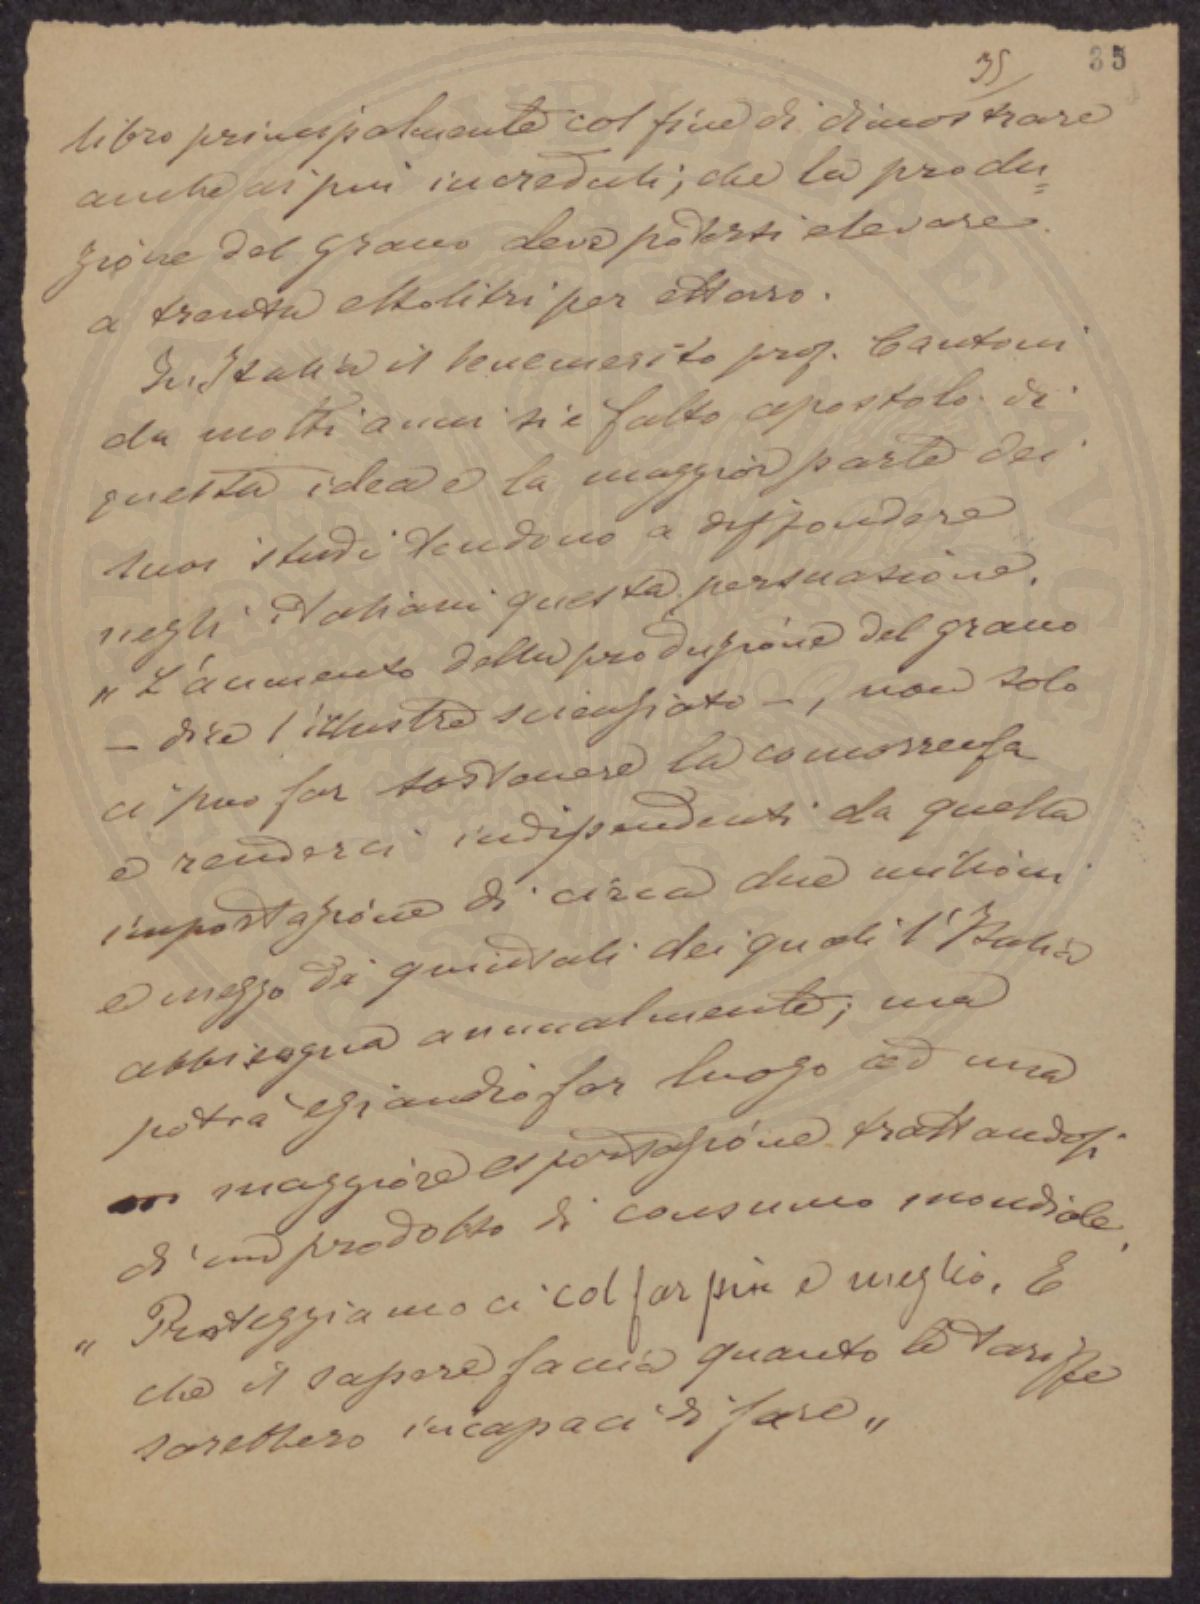 35 35
libro principalmente col fine di dimostrare
anche ai piu increduli; che la produ=
zione del grano deve potersi elevare
a trenta ettolitri per ettaro.
In Italia il benemerito prof. Cantoni
da molti anni si è fatto apostolo di
questa idea e la maggior parte dei
suoi studi tendono a diffondere
negli italiani questa persuasione.
„ L'aumento della produzione del grano
— dice l'illustre scienziato —, non solo
ci puo far sostenere la concorrenza
e renderci indipendenti da quella
importazione di circa due milioni
e mezzo di quintali dei quali l'Italia
abbisogna annualmente; ma
potrà eziandio far luogo ad una
maggiore esportazione trattandosi
di un prodotto di consumo mondiale.
„ Proteggiamoci col far più e meglio. E
che il sapere faccia quanto le tariffe
sarebbero incapaci di fare „